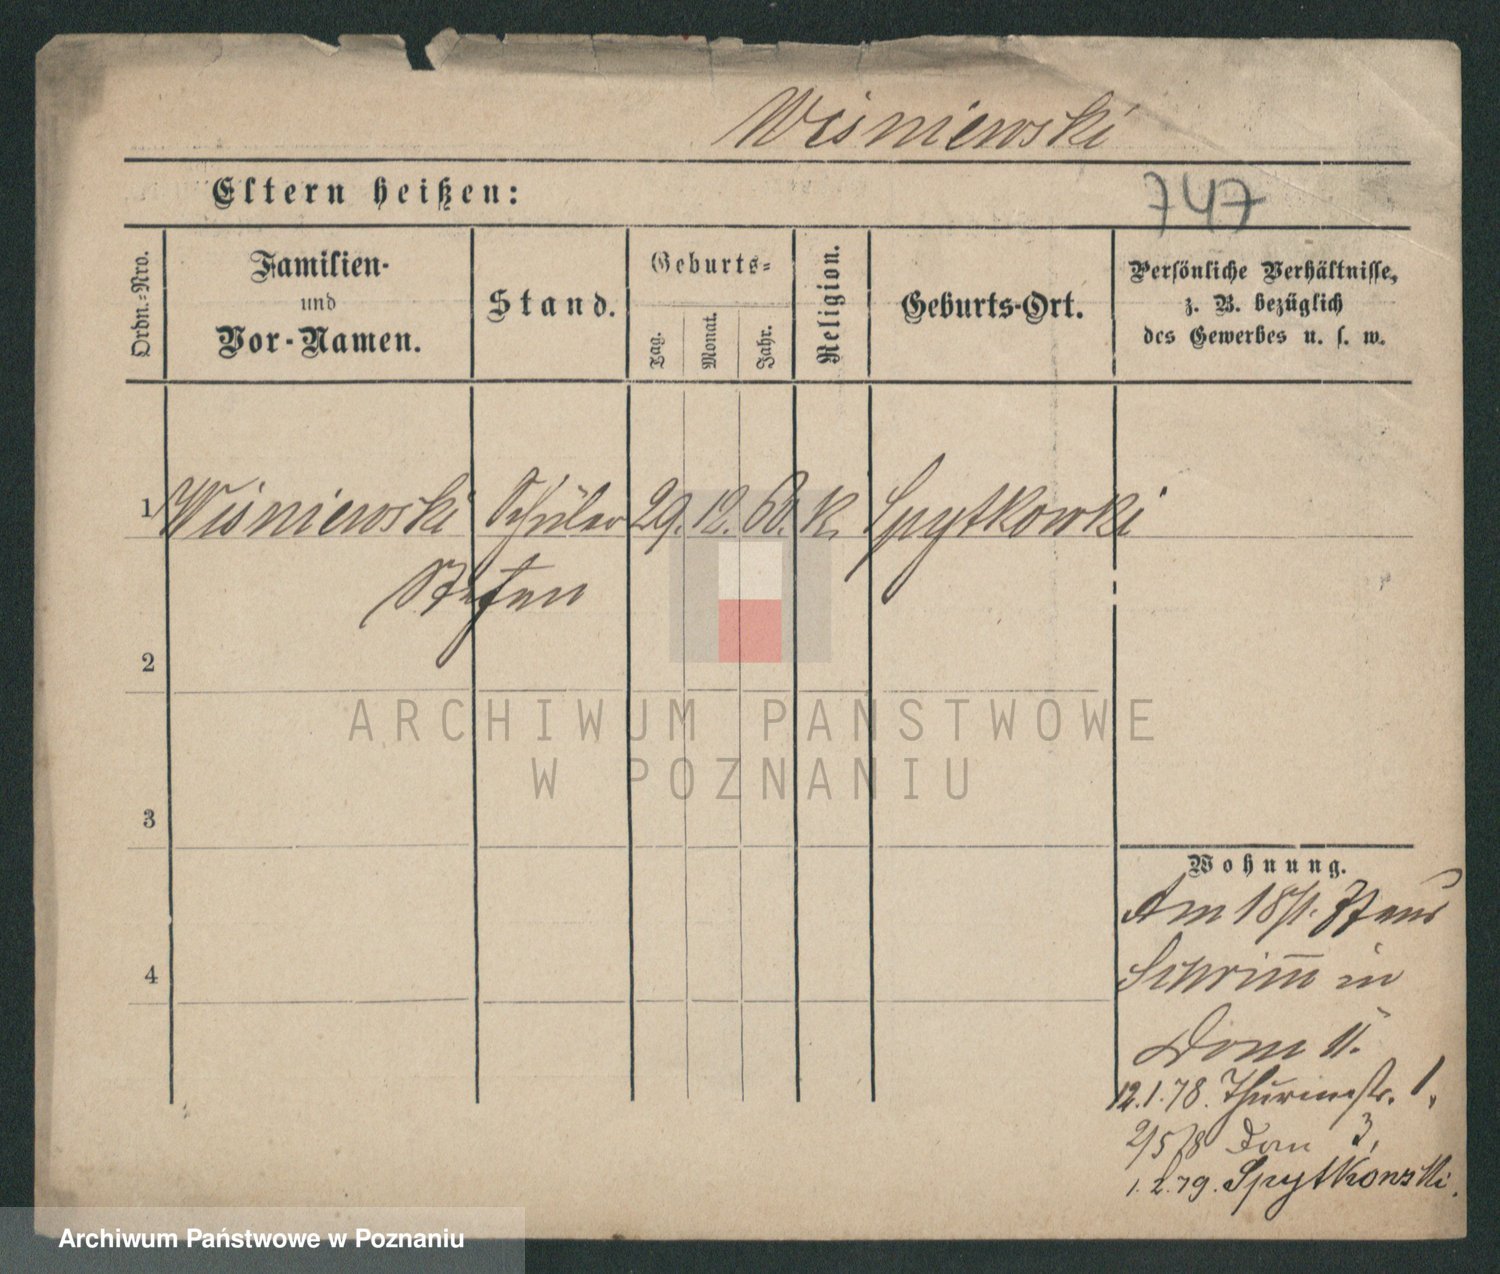 Wiśniewski
Eltern heißen:
747
Ordn.-Nro.
Familien-
und
Vor-Namen.
Stand.
Geburts-
Tag.
Monat.
Jahr.
Religion.
Geburts-Ort.
Persönliche Verhältnisse,
z. B. bezüglich
des Gewerbes u. s. w.
1 Wiśniewski Schüler 29. 12. 60. k. Spytkowki
Stefan
2
3
4
Wohnung.
Am 18/1. 77 aus
Schrimm in
Dom 11.
12.1.78. Thurmstr. 1.
2/5 78 Dom 3,
1.2.79. Spytkowski.
ARCHIWUM PAŃSTWOWE
W POZNANIU
Archiwum Państwowe w Poznaniu